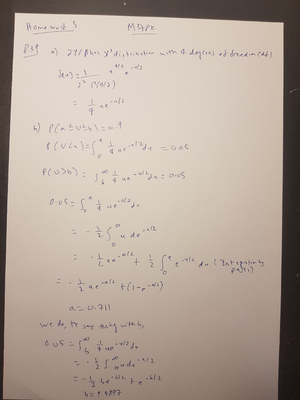 Homework 5
P39 a) 2Y/β has χ² distribution with 4 degrees of freedom (df)
f(u) = 1/(2² Γ(4/2)) u^(4/2) e^(-u/2)
= 1/4 u e^(-u/2)
b) P(a ≤ U ≤ b) = 0.9
P(U<a) = ∫₀^a 1/4 u e^(-u/2) du = 0.05
P(U>b) = ∫_b^∞ 1/4 u e^(-u/2) du = 0.05
0.05 = ∫₀^a 1/4 u e^(-u/2) du
= -1/2 ∫₀^a u de^(-u/2)
= -1/2 ae^(-a/2) + 1/2 ∫₀^a e^(-u/2) du (Integration by parts)
= -1/2 ae^(-a/2) + (1-e^(-a/2))
a = 0.711
we do, the same thing with b,
0.05 = ∫_b^∞ 1/4 u e^(-u/2) du
= -1/2 ∫_b^∞ u de^(-u/2)
= -1/2 be^(-b/2) + e^(-b/2)